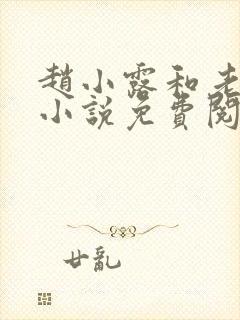 趙小露和老
小說免費閱
廿亂